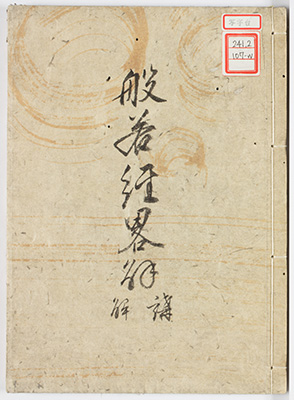 般若経畧解
講
解
241.2
107-w